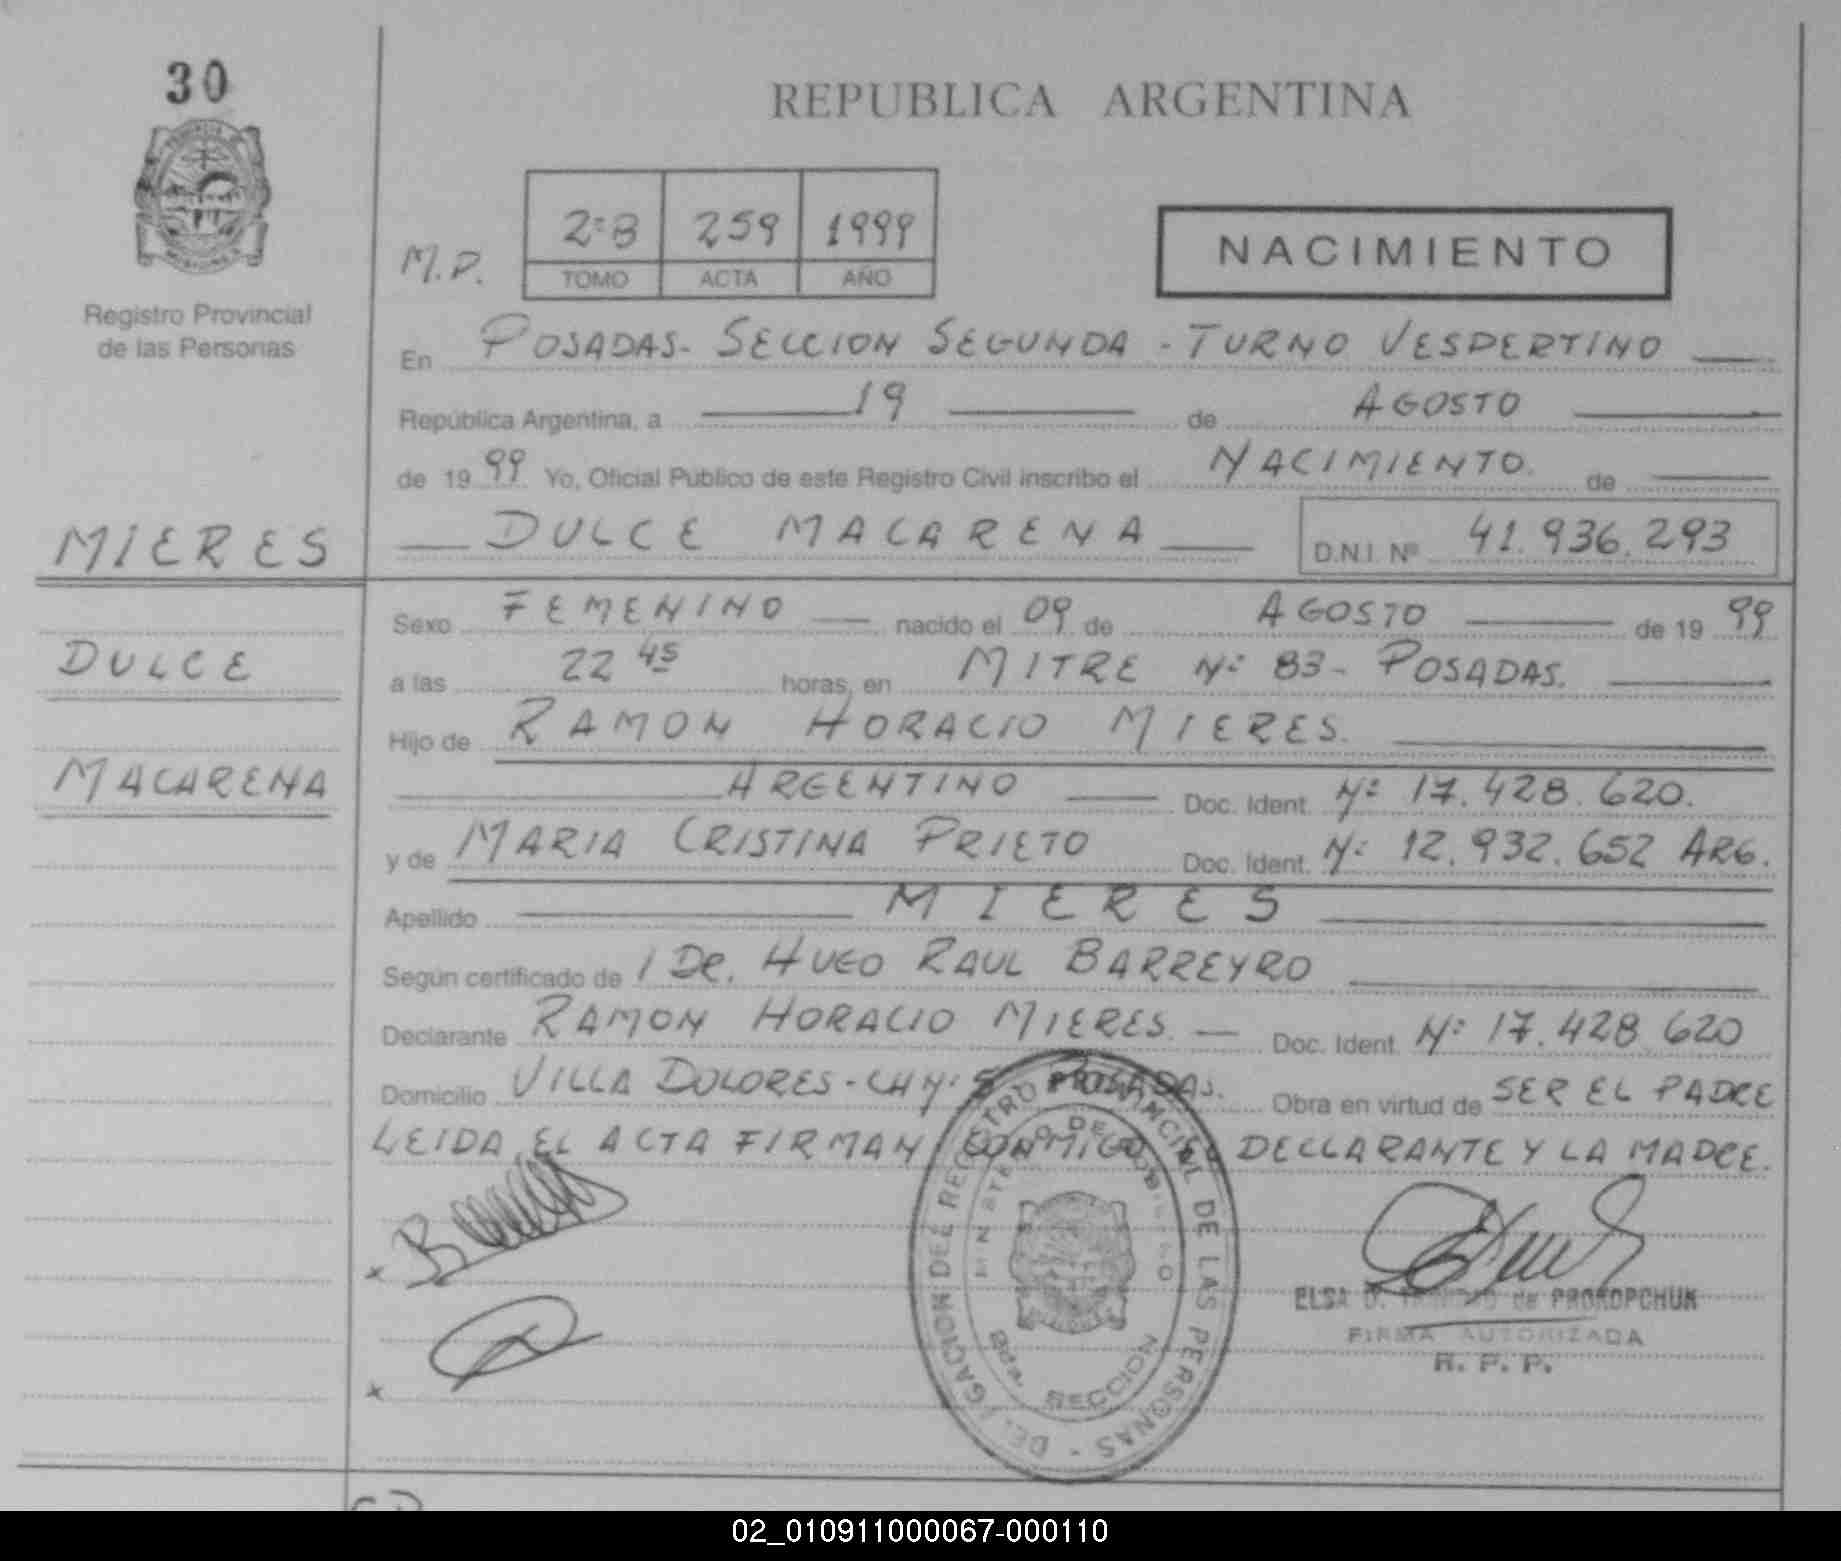 30
REPUBLICA ARGENTINA
Registro Provincial
de las Personas
M.D.
2=B 259 1999
TOMO ACTA AÑO
NACIMIENTO
En POSADAS - SECCION SEGUNDA - TURNO VESPERTINO
República Argentina, a 19 de AGOSTO
de 1999 Yo, Oficial Público de este Registro Civil inscribo el NACIMIENTO. de
DULCE MACARENA D.N.I. Nº 41.936.293
MIERES
DULCE
MACARENA
Sexo FEMENINO nacido el 09 de AGOSTO de 1999
a las 22 45 horas, en MITRE Nº 83 - POSADAS.
Hijo de RAMON HORACIO MIERES.
ARGENTINO Doc. Ident. Nº 17.428.620.
y de MARIA CRISTINA PRIETO Doc. Ident. Nº 12.932.652 ARG.
Apellido MIERES
Según certificado de 1 DR. HUGO RAUL BARREYRO
Declarante RAMON HORACIO MIERES. Doc. Ident. Nº 17.428.620
Domicilio VILLA DOLORES - CH Nº 5 POSADAS. Obra en virtud de SER EL PADRE
LEIDA EL ACTA FIRMAN CONMIGO EL DECLARANTE Y LA MADRE.
DELEGACION DEL REGISTRO PROVINCIAL DE LAS PERSONAS
MINISTERIO DE GOBIERNO
SECCION
ELSA D. de PROKOPCHUK
FIRMA AUTORIZADA
R. P. P.
02_010911000067-000110